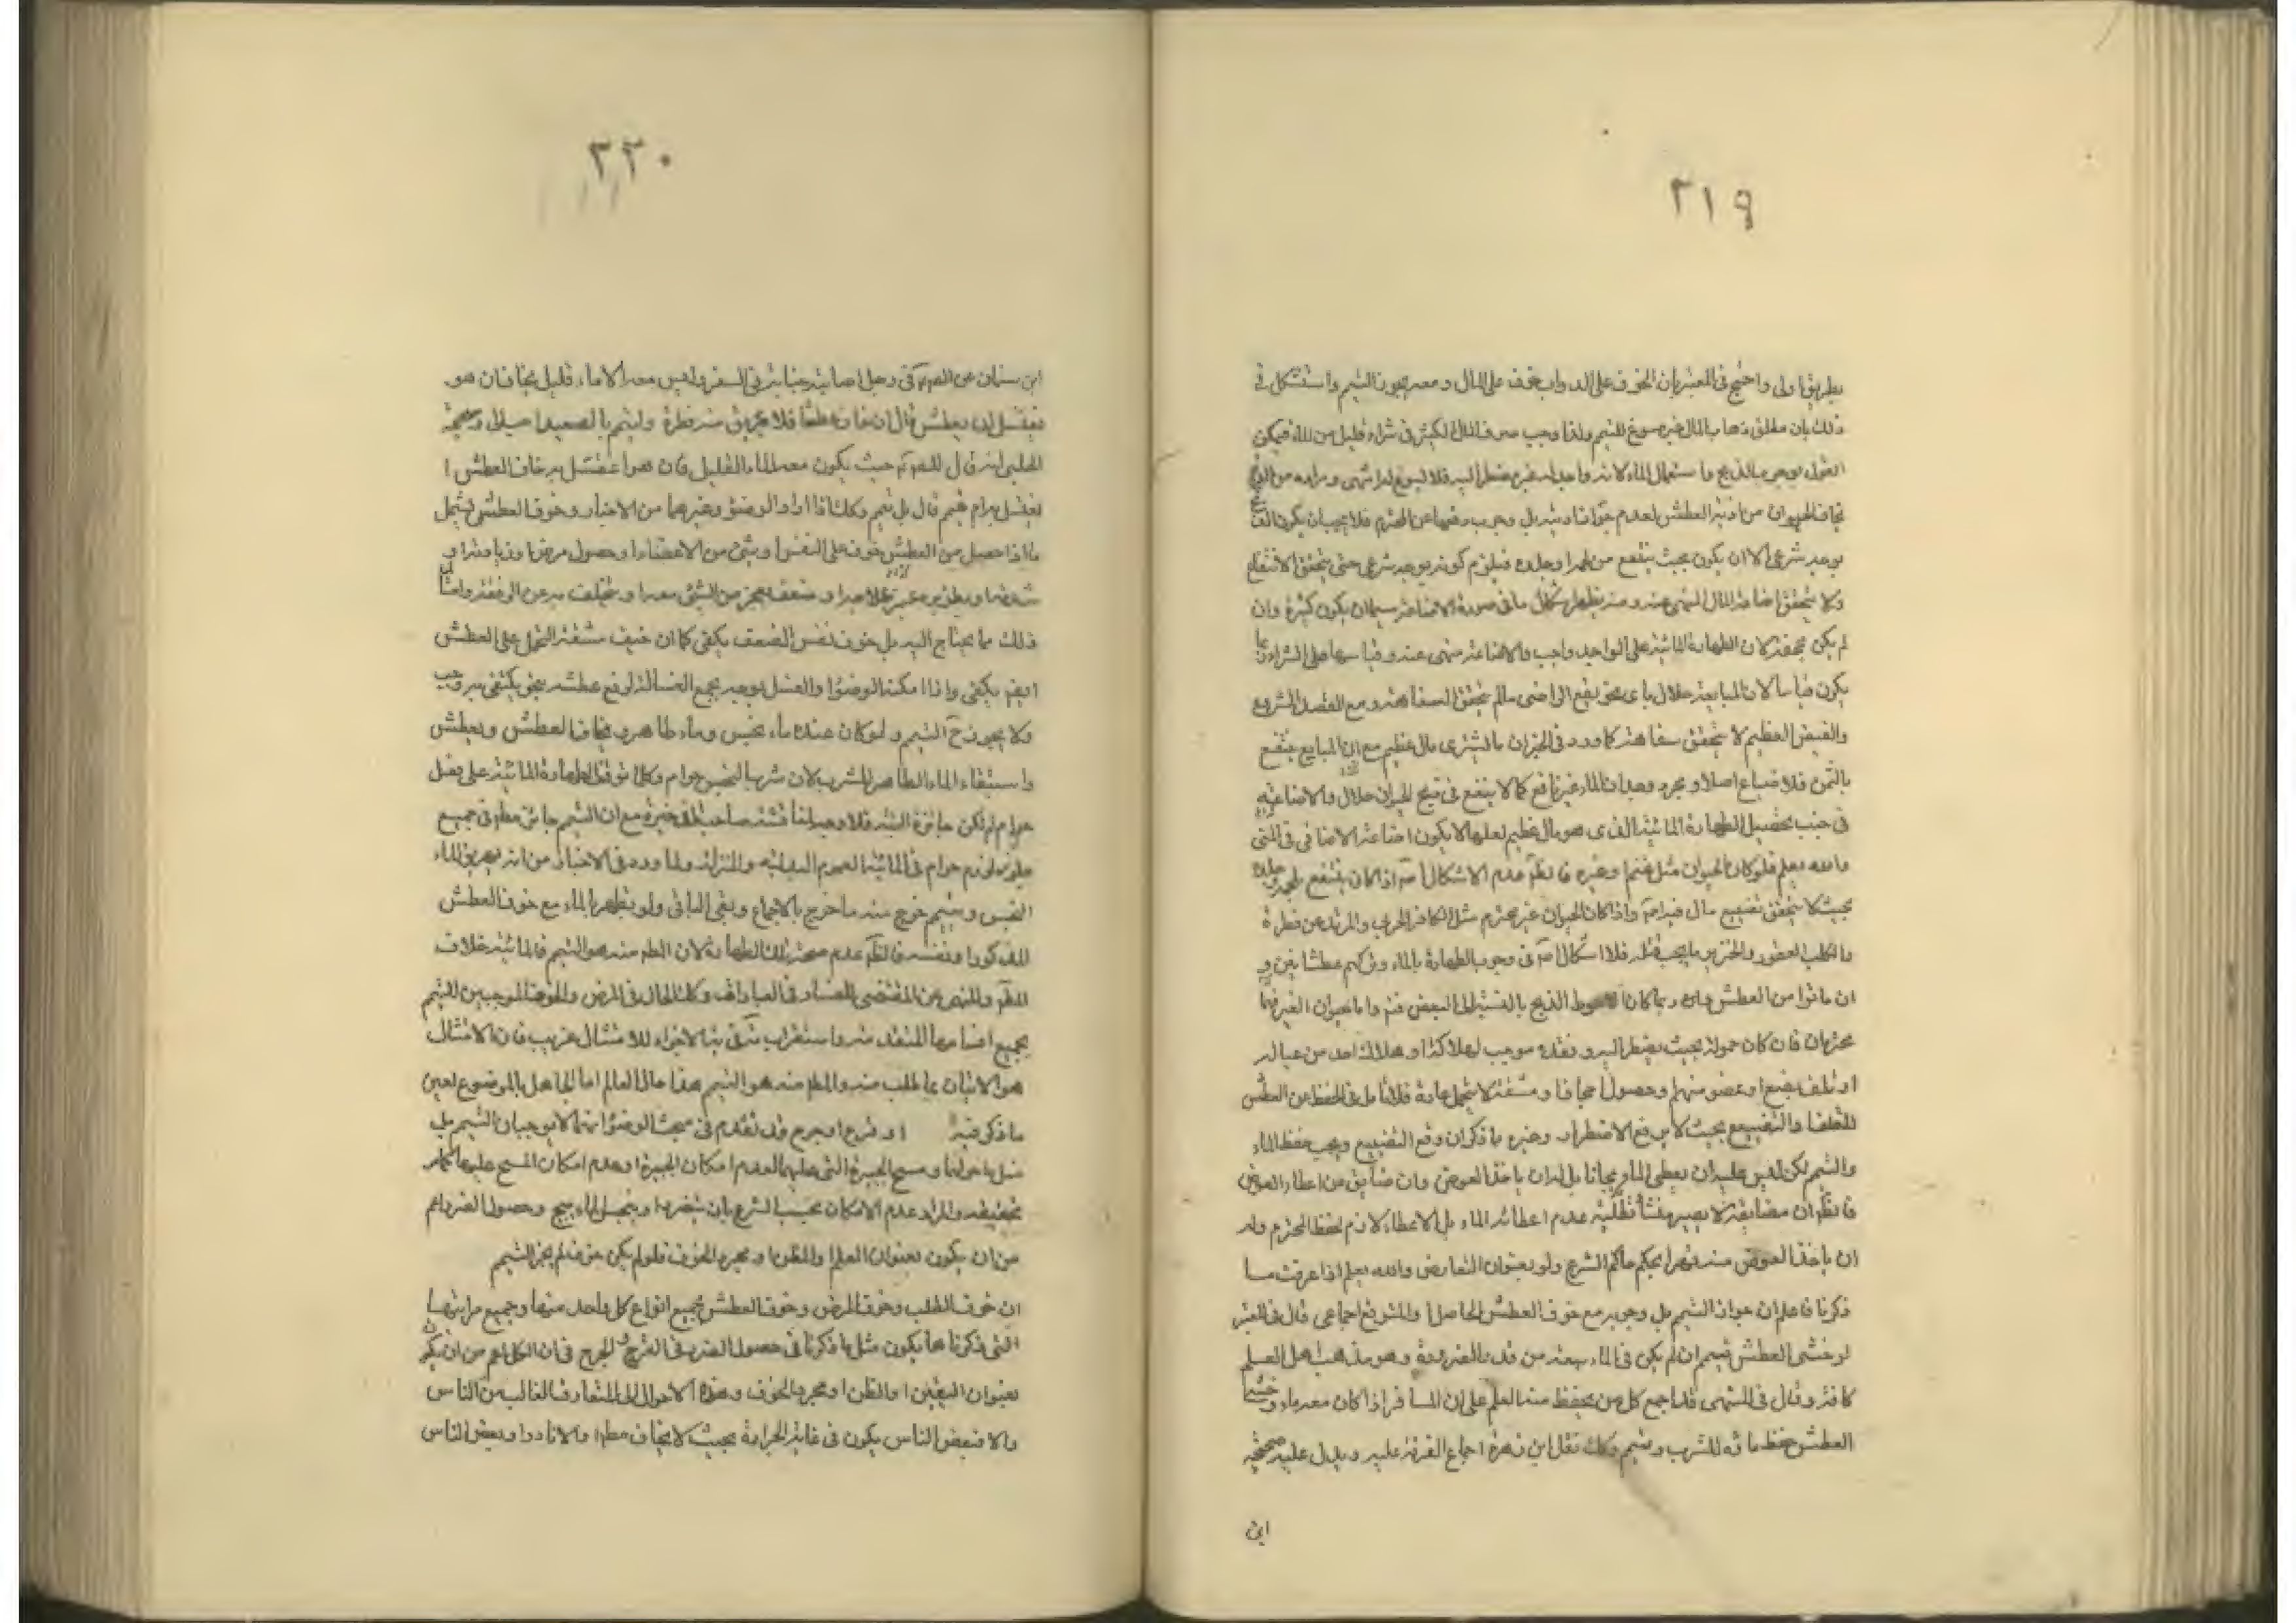 ٢١٩
بطريق اولى واحتج في المعتبر بان الخوف على الدواب خوف على المال ومعه يجوز التيمم واستشكل في
ذلك بان مطلق ذهاب المال غير مسوغ للتيمم ولذا وجب صرف المال الكثير في شراء قليل من الماء فيمكن
القول بوجوب الذبح واستعمال الماء لانه واجد له غير مضطر اليه فلا يسوغ له
يخاف الحيوان من اذية العطش لعدم جواز بل وجوب دفعها عن المحترم فلا يجب ان يكون
بوجه شرعي الا ان يكون بحيث ينتفع من لحمه او جلده فيلزم كونه بوجه شرعي حتى يتحقق الانتفاع
ولا يتحقق اضاعة المال المنهي عنه ومنه يظهر اشكال ما في صورة الاضاعة سيما ان يكون كثيرة وان
لم يكن مجحفة لان الطهارة المائية على الواجد واجب والاضاعة منهي عنه وقياسها على الشراء
يكون قياسا لان المبايعة حلال باي نحو يقع التراضي مالم يتحقق السفاهة ومع الفصل المشروع
والفيض العظيم لا يتحقق سفاهة كما ورد في الخبر ان ما اشترى مال عظيم مع ان المبايع ينتفع
بالثمن فلا ضياع اصلا ومجرد وجدان الماء غير نافع كما لا ينفع في قبح الحيوان حلال والاضاعة
في جنب تحصيل الطهارة المائية الذي هو مال عظيم لعلها لا يكون اضاعة الاضافي في المتن
والله يعلم فلو كان الحيوان مثل غنم وغيره فالظ عدم الاشكال اذا كان ينتفع بلحمه وجلده
بحيث لا يتحقق تضييع مال فيه واذا كان الحيوان غير محترم مثل الكافر الحربي والمرتد عن فطرة
والكلب العقور والخنزير ما يجب قتله فلا اشكال في وجوب الطهارة بالماء وتركهم عطشا
ان ماتوا من العطش الذبح بالنسبة الى البعض واما حيوان الغير
محترمان فان كان حمولة بحيث يضطر اليه وفقده موجب لهلاكه او هلاك احد من عياله
او تلف بضع او عضو منهم او حصول ومشقة لا يتحمل عادة فلا تامل في الحفظ عن العطش
للتلف والتضييع بحيث لا يرفع الاضطرار وغيره ما ذكر ان وقع التضييع ويجب حفظ الماء
والتيمم لكن ليس عليه ان يعطي الماء مجانا بل له ان ياخذ العوض وان ضايق من اعطاء العوض
فالظ ان مضايقته لا يصير منشأ عدم اعطائه الماء بل الاعطاء لازم لحفظ المحترم وله
ان ياخذ العوض منه قهرا بحكم حاكم الشرع ولو بعنوان التعارض والله يعلم اذا عرفت ما
ذكرنا فاعلم ان جواز التيمم بل وجوبه مع خوف العطش الحاصل او المتوقع اجماعي قال في المعتبر
لو خشي العطش تيمم ان لم يكن في الماء سعة من قدر الضرورة وهو مذهب اهل العلم
كافة وقال في المنتهى قد اجمع كل من يحفظ عنه العلم على ان المسافر اذا كان معه ماء وخشي
العطش حفظ ماءه للشرب وتيمم وكك نقل ابن زهرة اجماع الفرقة عليه ويدل عليه صحيحة
ابن
٢٢٠
ابن سنان عن الص ع في رجل اصابته جنابة في السفر وليس معه الا ماء قليل يخاف ان هو
يغتسل ان يعطش قال ان خاف عطشا فلا يهريق منه قطرة وليتيمم بالصعيد وصحيحة
الحلبي انه قال للص ع حيث يكون معه الماء القليل فان هو اغتسل به خاف العطش ا
يغتسل به ام يتيمم قال بل يتيمم وكك اذا اراد الوضوء وغيرهما من الاخبار وخوف العطش يشمل
ما اذا حصل من العطش خوف على النفس او شيء من الاعضاء او حصول مرض او زيادته او
شدته او بطؤ برء او علاجه او ضعف يعجز من المشي معه او يتخلف به عن الرفقة وامثال
ذلك مما يحتاج اليه بل خوف نفس الضعف يكفي كما ان خيف مشقة التحمل على العطش
ايضم يكفي واذا امكنه الوضوء او الغسل بوجه يجمع الغسالة لرفع عطشه بنحو يكتفي به وجب
ولا يجوز ح التيمم ولو كان عنده ماء نجس وماء طاهر ويخاف العطش
واستبقاء الماء الطاهر للشرب لان شربها النجس حرام وكلما توقف الطهارة المائية على فعل
حرام لم تكن جائزة البتة فلا وجه لمناقشة صاحب الذخيرة مع ان التيمم جائز مطلقا في جميع
لزم حرام في المائية لعموم البدلية والمنزلة ولما ورد في الاخبار من انه يهريق الماء
النجس ويتيمم خرج منه ما خرج بالاجماع وبقي الباقي ولو تطهر بالماء مع خوف العطش
المذكور او نفسه فالظ عدم صحة تلك الطهارة لان المط منه هو التيمم فالمائية خلاف
المط والنهي عن المقتضي للفساد في العبادات وكك الحال في المرض والخوف الموجبين للتيمم
بجميع اقسامها المتقدمة واستقراب الاجزاء للامتثال غريب فان الامتثال
هو الاتيان بما طلب منه والمط منه هو التيمم هذا حال العالم اما الجاهل بالموضوع لعين
ما ذكر فيه او قرح او جرح قد تقدم في مبحث الوضوء انهما لا يوجبان التيمم بل
غسل ما حولها ومسح الجبيرة التي عليها لعدم امكان الجبيرة او عدم امكان المسح عليها
والمراد عدم الامكان بحسب الشرع بان يتضرر او وحصول الضرر اعم
من ان يكون بعنوان العلم او الظن او مجرد الخوف فلو لم يكن خوف لم يجز التيمم
ان خوف الطلب وخوف المرض وخوف العطش بجميع انواع كل واحد منها وجميع مراتبها
التي ذكرنا ها يكون مثل ما ذكرنا في حصول الضرر في القرح والجرح في ان الكل اعم من ان يكون
بعنوان اليقين او الظن او مجرد الخوف وهذه الاحوال المتعارف الغالب من الناس
والا فبعض الناس يكون في غاية الجرأة بحيث لا يخاف مطلقا والا نادرا وبعض الناس